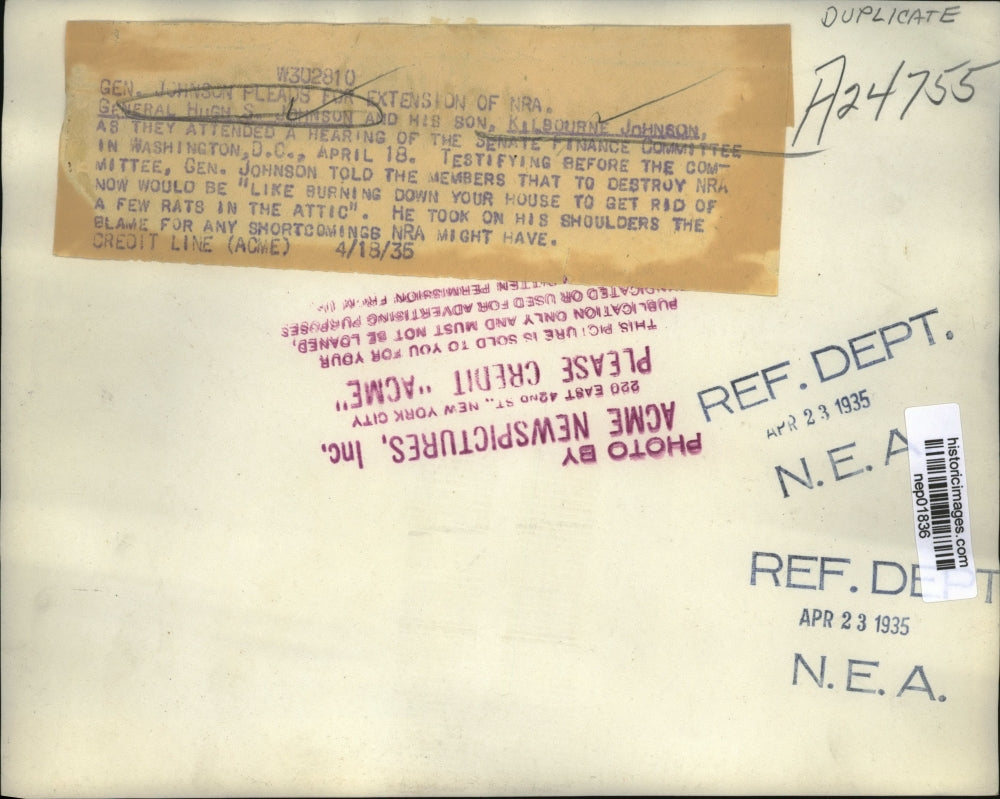 DUPLICATE
A24755
W302810
GEN. JOHNSON PLEADS FOR EXTENSION OF NRA.
GENERAL HUGH S. JOHNSON AND HIS SON, KILBOURNE JOHNSON,
AS THEY ATTENDED A HEARING OF THE SENATE FINANCE COMMITTEE
IN WASHINGTON, D.C., APRIL 18. TESTIFYING BEFORE THE COM-
MITTEE, GEN. JOHNSON TOLD THE MEMBERS THAT TO DESTROY NRA
NOW WOULD BE "LIKE BURNING DOWN YOUR HOUSE TO GET RID OF
A FEW RATS IN THE ATTIC". HE TOOK ON HIS SHOULDERS THE
BLAME FOR ANY SHORTCOMINGS NRA MIGHT HAVE.
CREDIT LINE (ACME) 4/18/35
PHOTO BY
ACME NEWSPICTURES, Inc.
220 EAST 42ND ST., NEW YORK CITY
PLEASE CREDIT "ACME"
THIS PICTURE IS SOLD TO YOU FOR YOUR
PUBLICATION ONLY AND MUST NOT BE LOANED,
SYNDICATED OR USED FOR ADVERTISING PURPOSES
WRITTEN PERMISSION
REF. DEPT.
APR 23 1935
N. E. A
historicimages.com
nep01836
REF. DEPT
APR 23 1935
N. E. A.